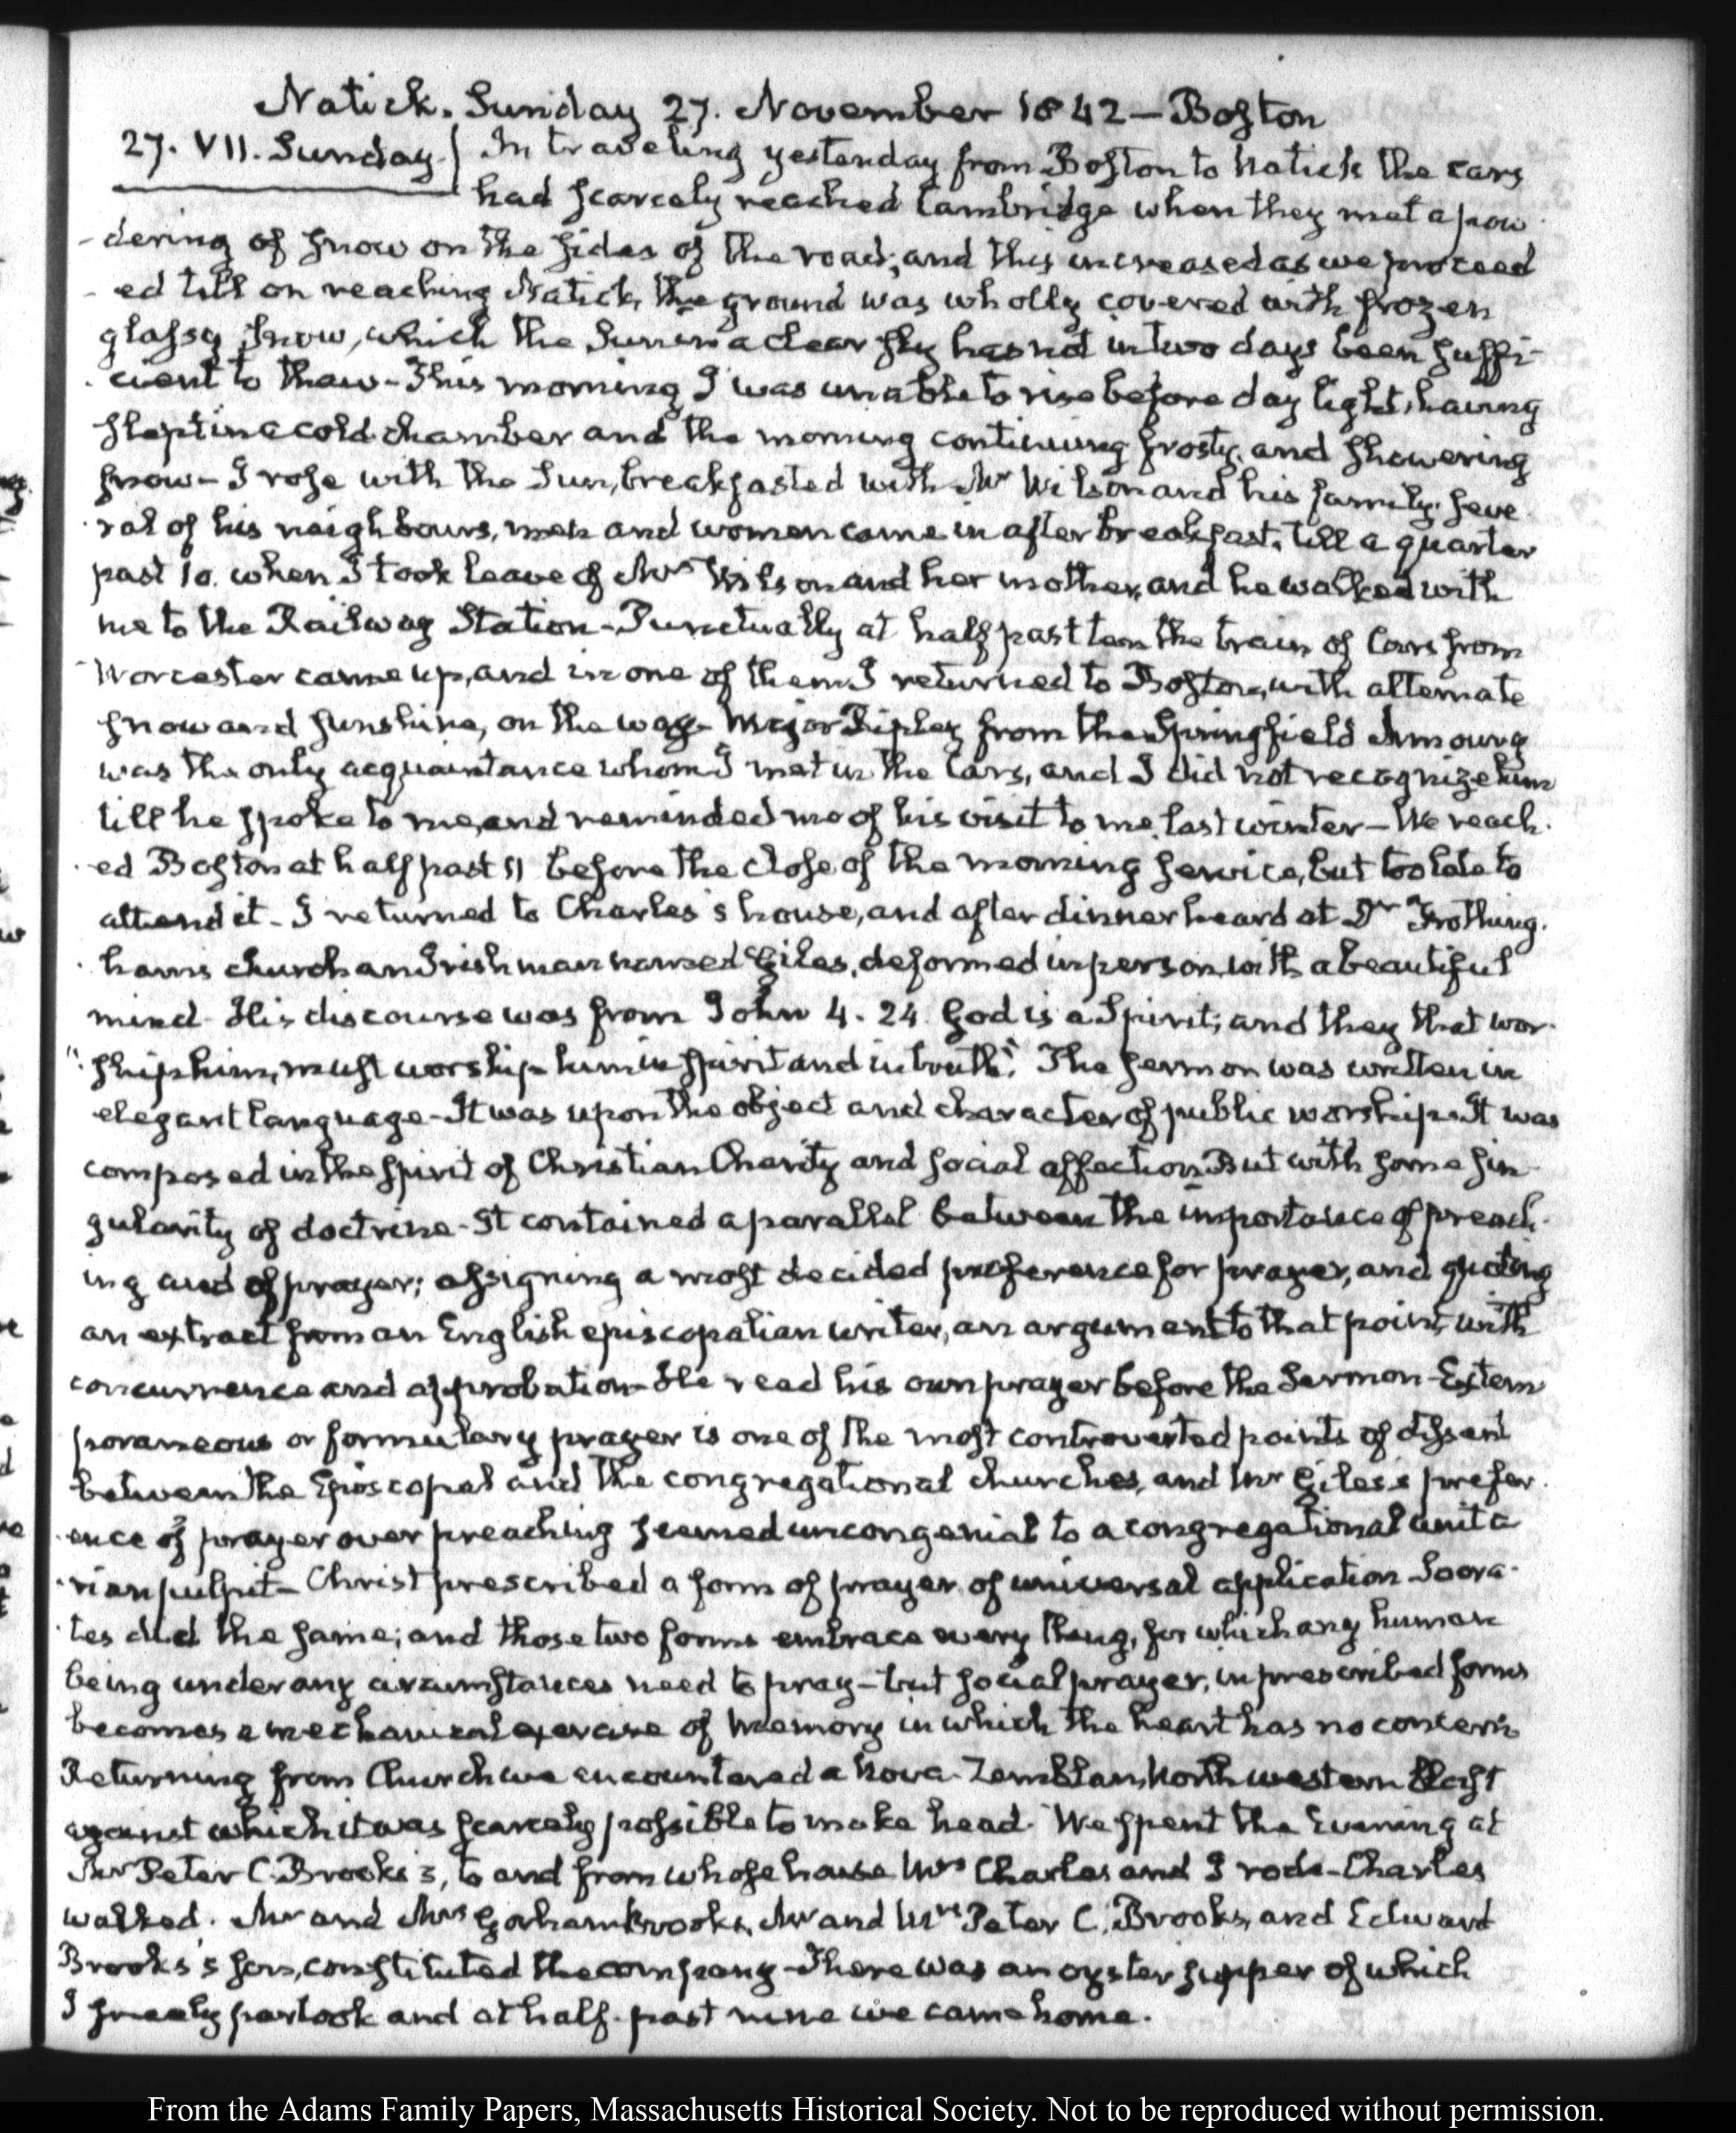 Natick. Sunday 27. November 1842 — Boston
27. VII. Sunday. In traveling yesterday from Boston to Natick the cars
had scarcely reached Cambridge when they met a pow
-dering of snow on the sides of the road; and this increased as we proceed
-ed till on reaching Natick, the ground was wholly covered with frozen
glassy snow, which the Sun in a clear sky has not in two days been suffi-
cient to thaw - This morning I was unable to rise before day light, having
slept in a cold chamber and the morning continuing frosty, and showering
snow - I rose with the Sun, breakfasted with Mr Wilson and his family. seve
ral of his neighbours, men and women came in after breakfast, till a quarter
past 10. when I took leave of Mrs Wilson and her mother, and he walked with
me to the Railway Station - Punctually at half past ten the train of Cars from
Worcester came up, and in one of them I returned to Boston, with alternate
snow and sunshine, on the way - Major Ripley from the Springfield Armoury
was the only acquaintance whom I met in the Cars, and I did not recognize him
till he spoke to me, and reminded me of his visit to me last winter - We reach.
ed Boston at half past 11 before the close of the morning service, but too late to
attend it - I returned to Charles's house, and after dinner heard at Dr Frothing.
hams church an Irishman named Giles, deformed in person, with a beautiful
mind - His discourse was from John 4. 24. God is a Spirit; and they that wor-
"ship him, must worship him in spirit and in truth." The sermon was written in
elegant language - It was upon the object and character of public worship. It was
composed in the spirit of Christian Charity and social affection But with some sin-
gularity of doctrine - It contained a parallel between the importance of preach-
ing and of prayer; assigning a most decided preference for prayer, and quoting
an extract from an English episcopalian writer, an argument to that point, with
concurrence and approbation - He read his own prayer before the Sermon - Extem
poraneous or formulary prayer is one of the most controverted points of dissent
between the Episcopal and the congregational churches, and Mr Giles's prefer.
ence of prayer over preaching seemed uncongenial to a congregational unita
rian pulpit - Christ prescribed a form of prayer of universal application Socra-
tes did the same; and those two forms embrace every thing, for which any human
being under any circumstances need to pray - but social prayer, in prescribed forms
becomes a mechanical exercise of memory in which the heart has no concern
Returning from Church we encountered a Nova-Zemblan, North western blast
against which it was scarcely possible to make head. We spent the Evening at
Mr Peter C. Brooks's, to and from whose house Mrs Charles and I rode - Charles
walked. Mr and Mrs Gorham Brooks, Mr and Mrs Peter C. Brooks, and Edward
Brooks's son, constituted the company - There was an oyster supper of which
I freely partook and at half past nine we came home.
From the Adams Family Papers, Massachusetts Historical Society. Not to be reproduced without permission.